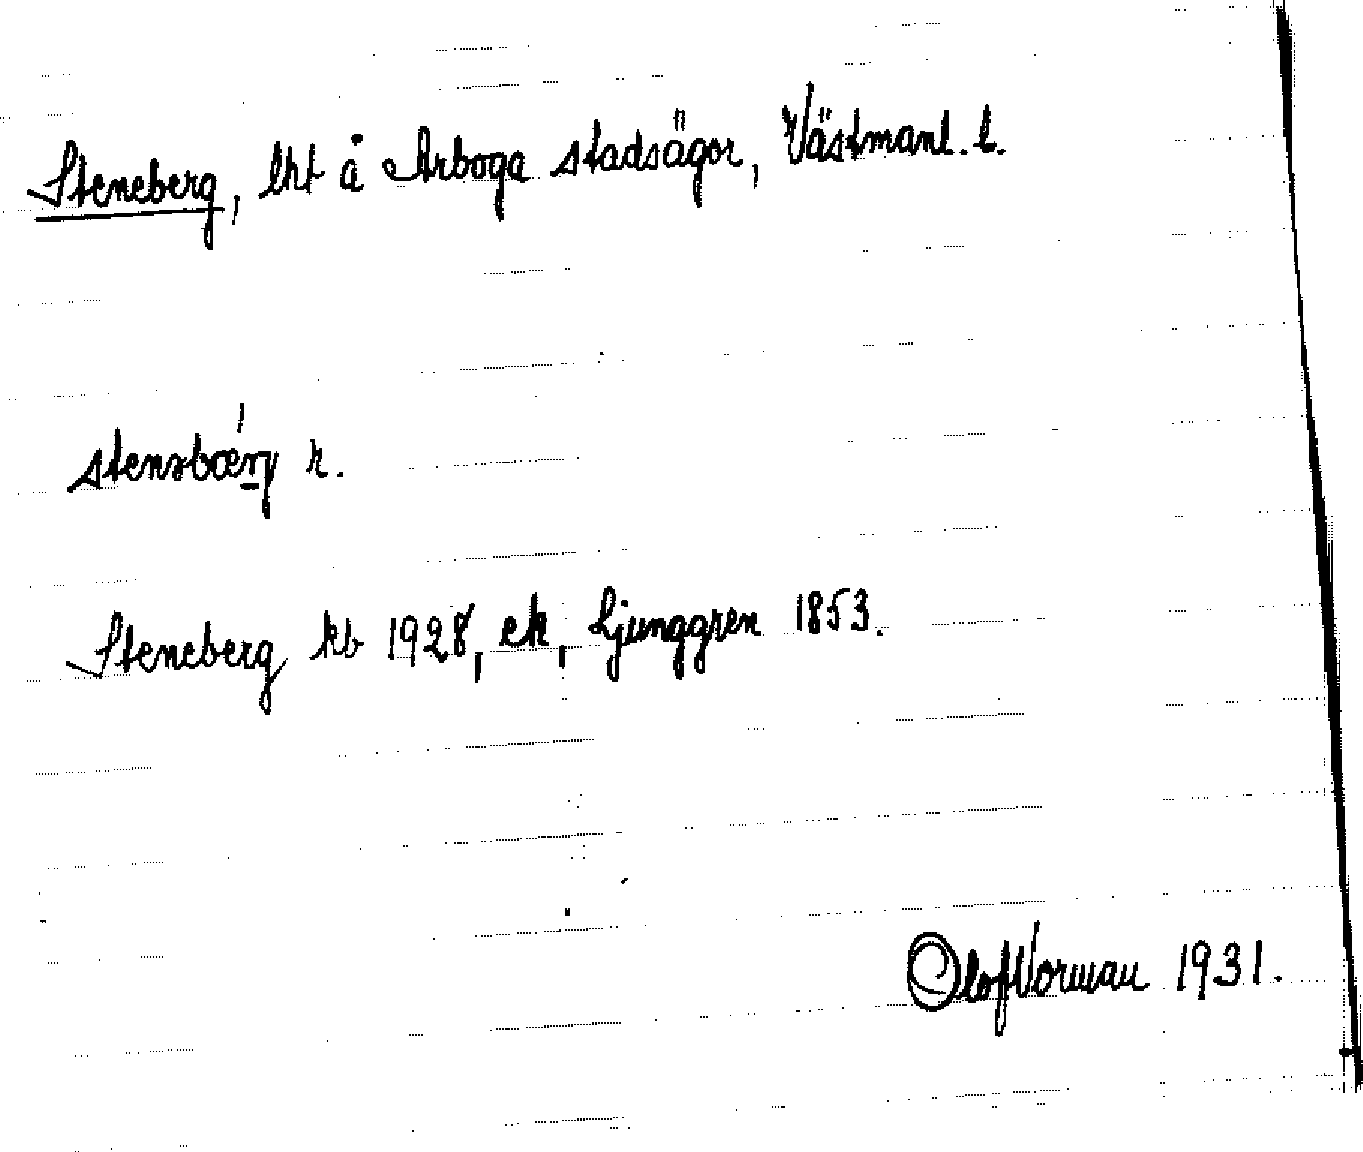 Steneberg, lht å Arboga stadsägor, Västmanl. l.
stensbærg r.
Steneberg kb 1928, ek, Ljunggren 1853.
Olof Vorman 1931.